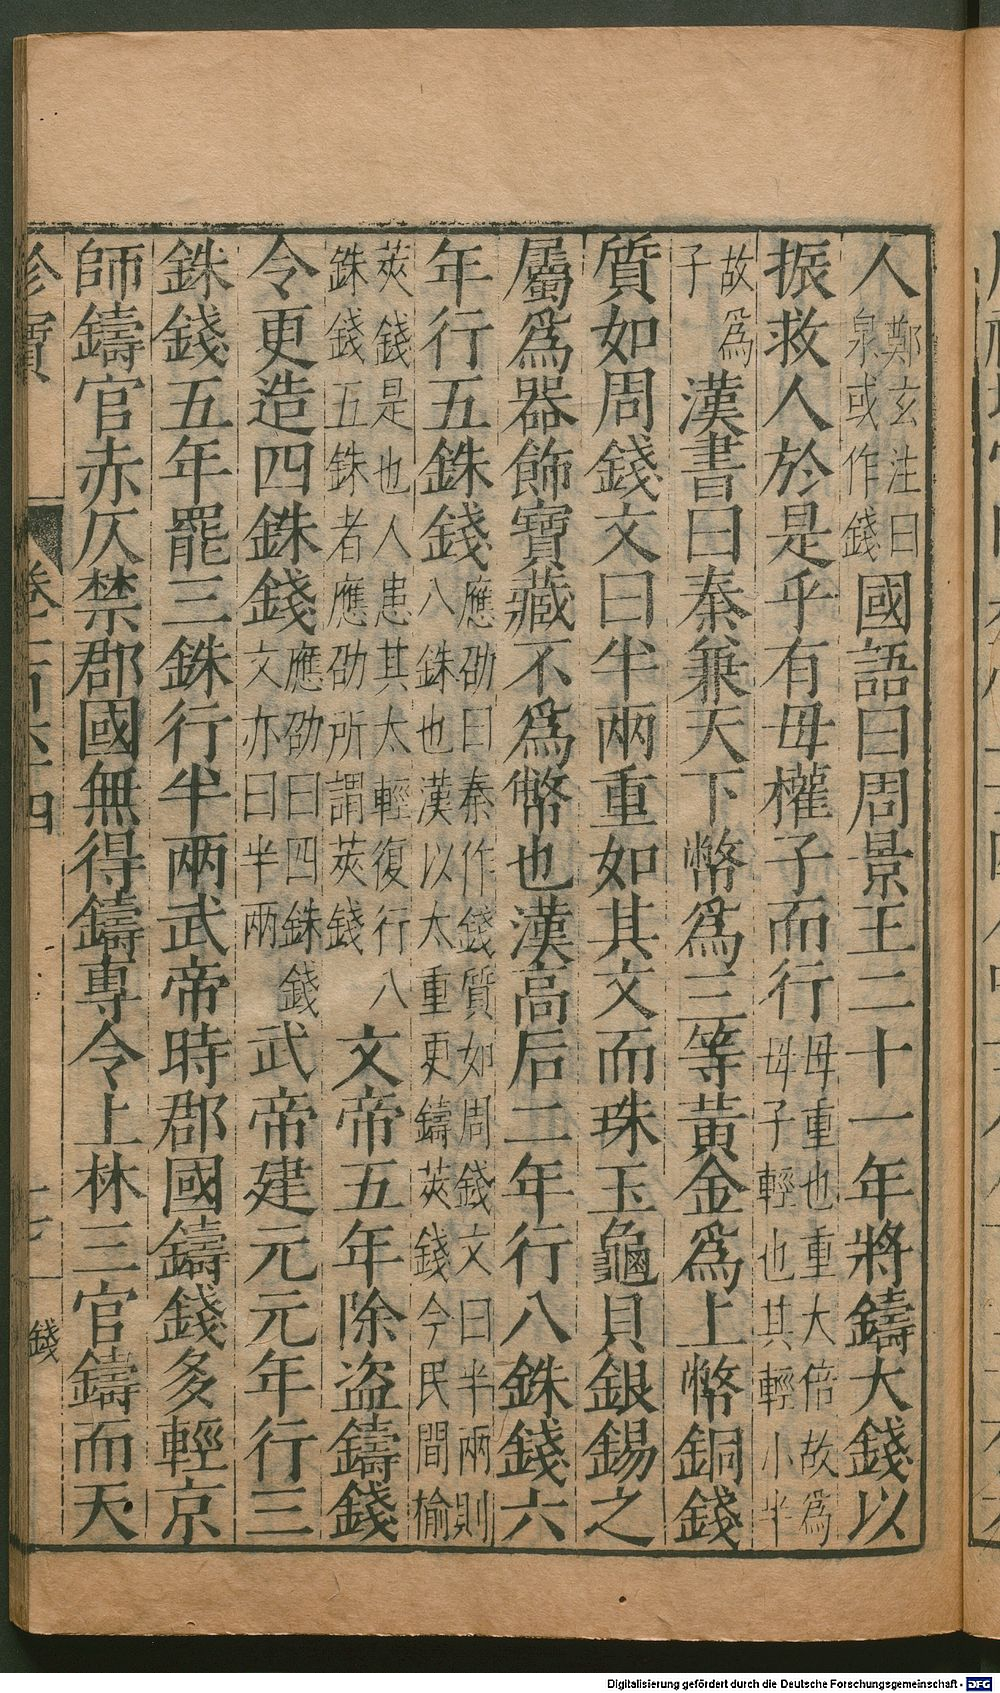 人鄭玄注曰泉或作錢國語曰周景王二十一年將鑄大錢以
振救人於是乎有母權子而行母重也重大倍故為母子輕也其輕小半
故為子漢書曰秦兼天下幣為三等黃金為上幣銅錢
質如周錢文曰半兩重如其文而珠玉龜貝銀錫之
屬爲器飾寶藏不爲幣也漢高后二年行八銖錢六
年行五銖錢應劭曰秦作錢質如周錢文曰半兩則八銖也漢以太重更鑄莢錢今民間榆
莢錢是也人患其太輕復行八銖錢五銖者應劭所謂莢錢文帝五年除盜鑄錢
令更造四銖錢應劭曰四銖錢文亦曰半兩武帝建元元年行三
銖錢五年罷三銖行半兩武帝時郡國鑄錢多輕京
師鑄官赤仄禁郡國無得鑄專令上林三官鑄而天
錢
Digitalisierung gefördert durch die Deutsche Forschungsgemeinschaft - DFG